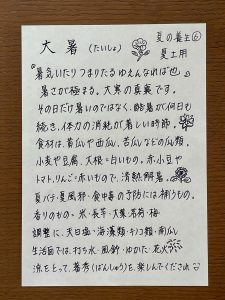 夏の養生⑥
大暑(たいしょ) 夏土用
『暑気いたりつまりたるゆえんなれば也』
暑さが極まる。大寒の真裏です。
その日だけ暑いのではなく、酷暑が何日も
続き、体力の消耗が著しい時節。
食材は、黄瓜や西瓜、苦瓜などの瓜類。
小麦や豆腐、大根=白いもの。赤小豆や
トマト、りんご=赤いもので、清熱解暑。
夏バテ・夏風邪・食中毒の予防には、補うもの。
香りのもの。米・長芋・大葉・茗荷・梅
調整に、天日塩・海藻類・キノコ類・南瓜
生活面では、打ち水・風鈴・ゆかた・花火
涼をとって、暮秀(ばんしゅう)を、楽しんでくださいネ